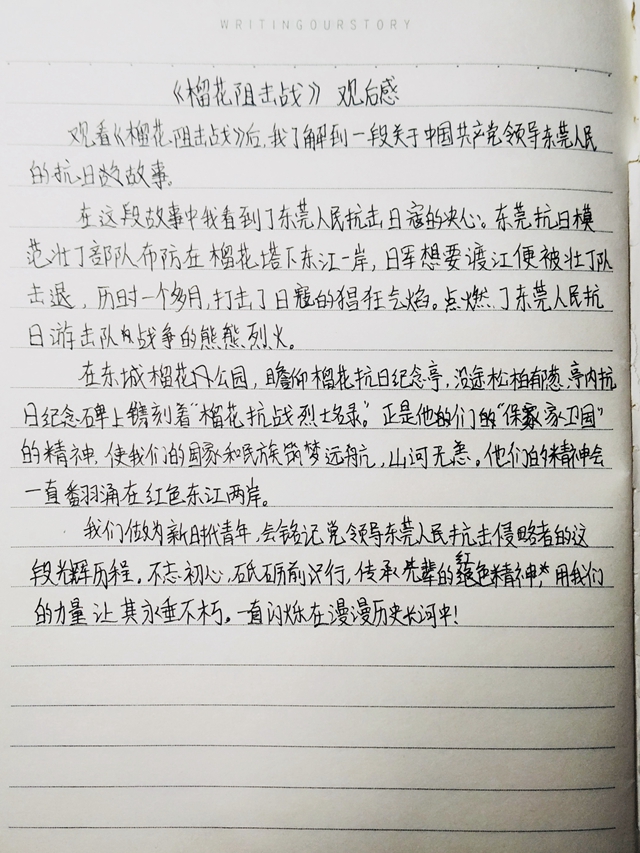 WRITINGOURSTORY
《榴花阻击战》观后感
观看《榴花阻击战》后,我了解到一段关于中国共产党领导东莞人民
的抗日故事。
在这段故事中我看到了东莞人民抗击日寇的决心。东莞抗日模
范壮丁部队布防在榴花塔下东江一岸,日军想要渡江便被壮丁队
击退,历时一个多月,打击了日寇的猖狂气焰。点燃了东莞人民抗
日游击队战争的熊熊烈火。
在东城榴花公园,瞻仰榴花抗日纪念亭,沿途松柏郁葱,亭内抗
日纪念碑上镌刻着“榴花抗战烈士名录”。正是他们的“保家卫国”
的精神,使我们的国家和民族筑梦远航,山河无恙。他们的精神会
一直翻涌在红色东江两岸。
我们做为新时代青年,会铭记党领导东莞人民抗击侵略者的这
段光辉历程。不忘初心,砥砺前行,传承先辈的红色精神,用我们
的力量让其永垂不朽。一直闪烁在漫漫历史长河中!